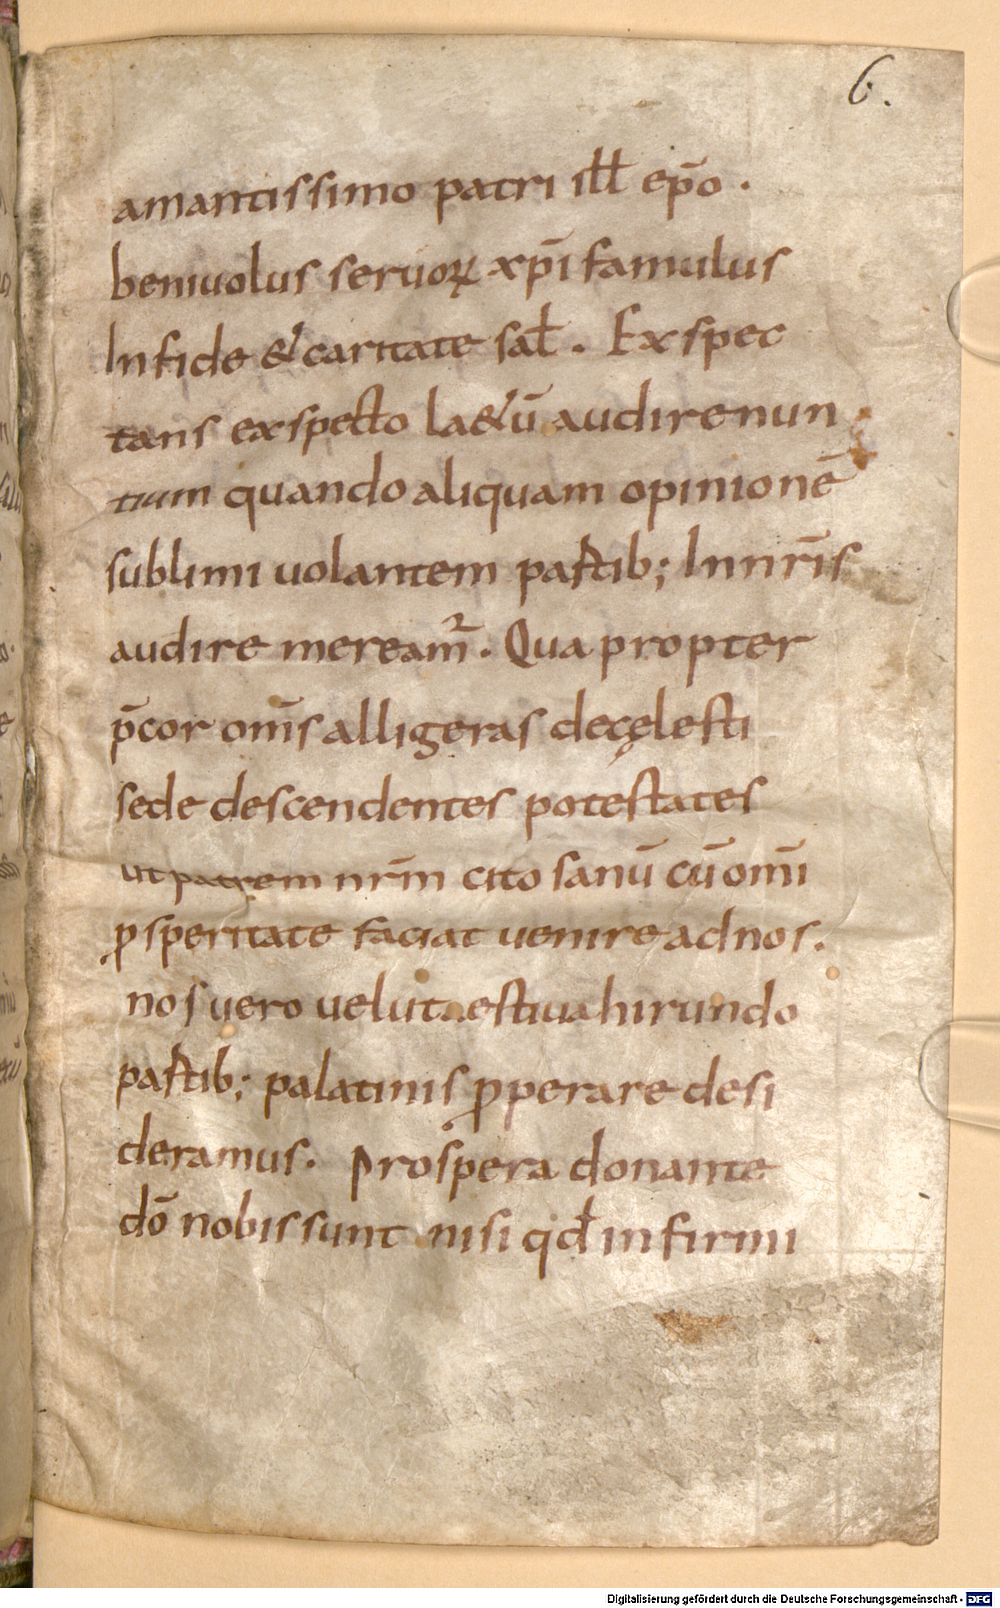 6.
amantissimo patri ill̄ ep̄o .
beniuolus seruoꝝ xp̄i famulus
In fide & caritate sal̄ . Exspec
tans exspecto la&ū audire nun
tium quando aliquam opinionē
sublimi uolantem pastib; In nr̄is
audire meream̄ . Qua propter
p̄cor om̄s alligeras de cęlesti
sede descendentes potestates
ut patrem nr̄m cito sanū cū om̄i
ꝓsperitate faciat uenire ad nos .
nos vero velut aestiua hirundo
pastib; palatinis ꝓperare desi
deramus . Prospera donante
dō nobis sunt nisi qđ infirmi
Digitalisierung gefördert durch die Deutsche Forschungsgemeinschaft - DFG